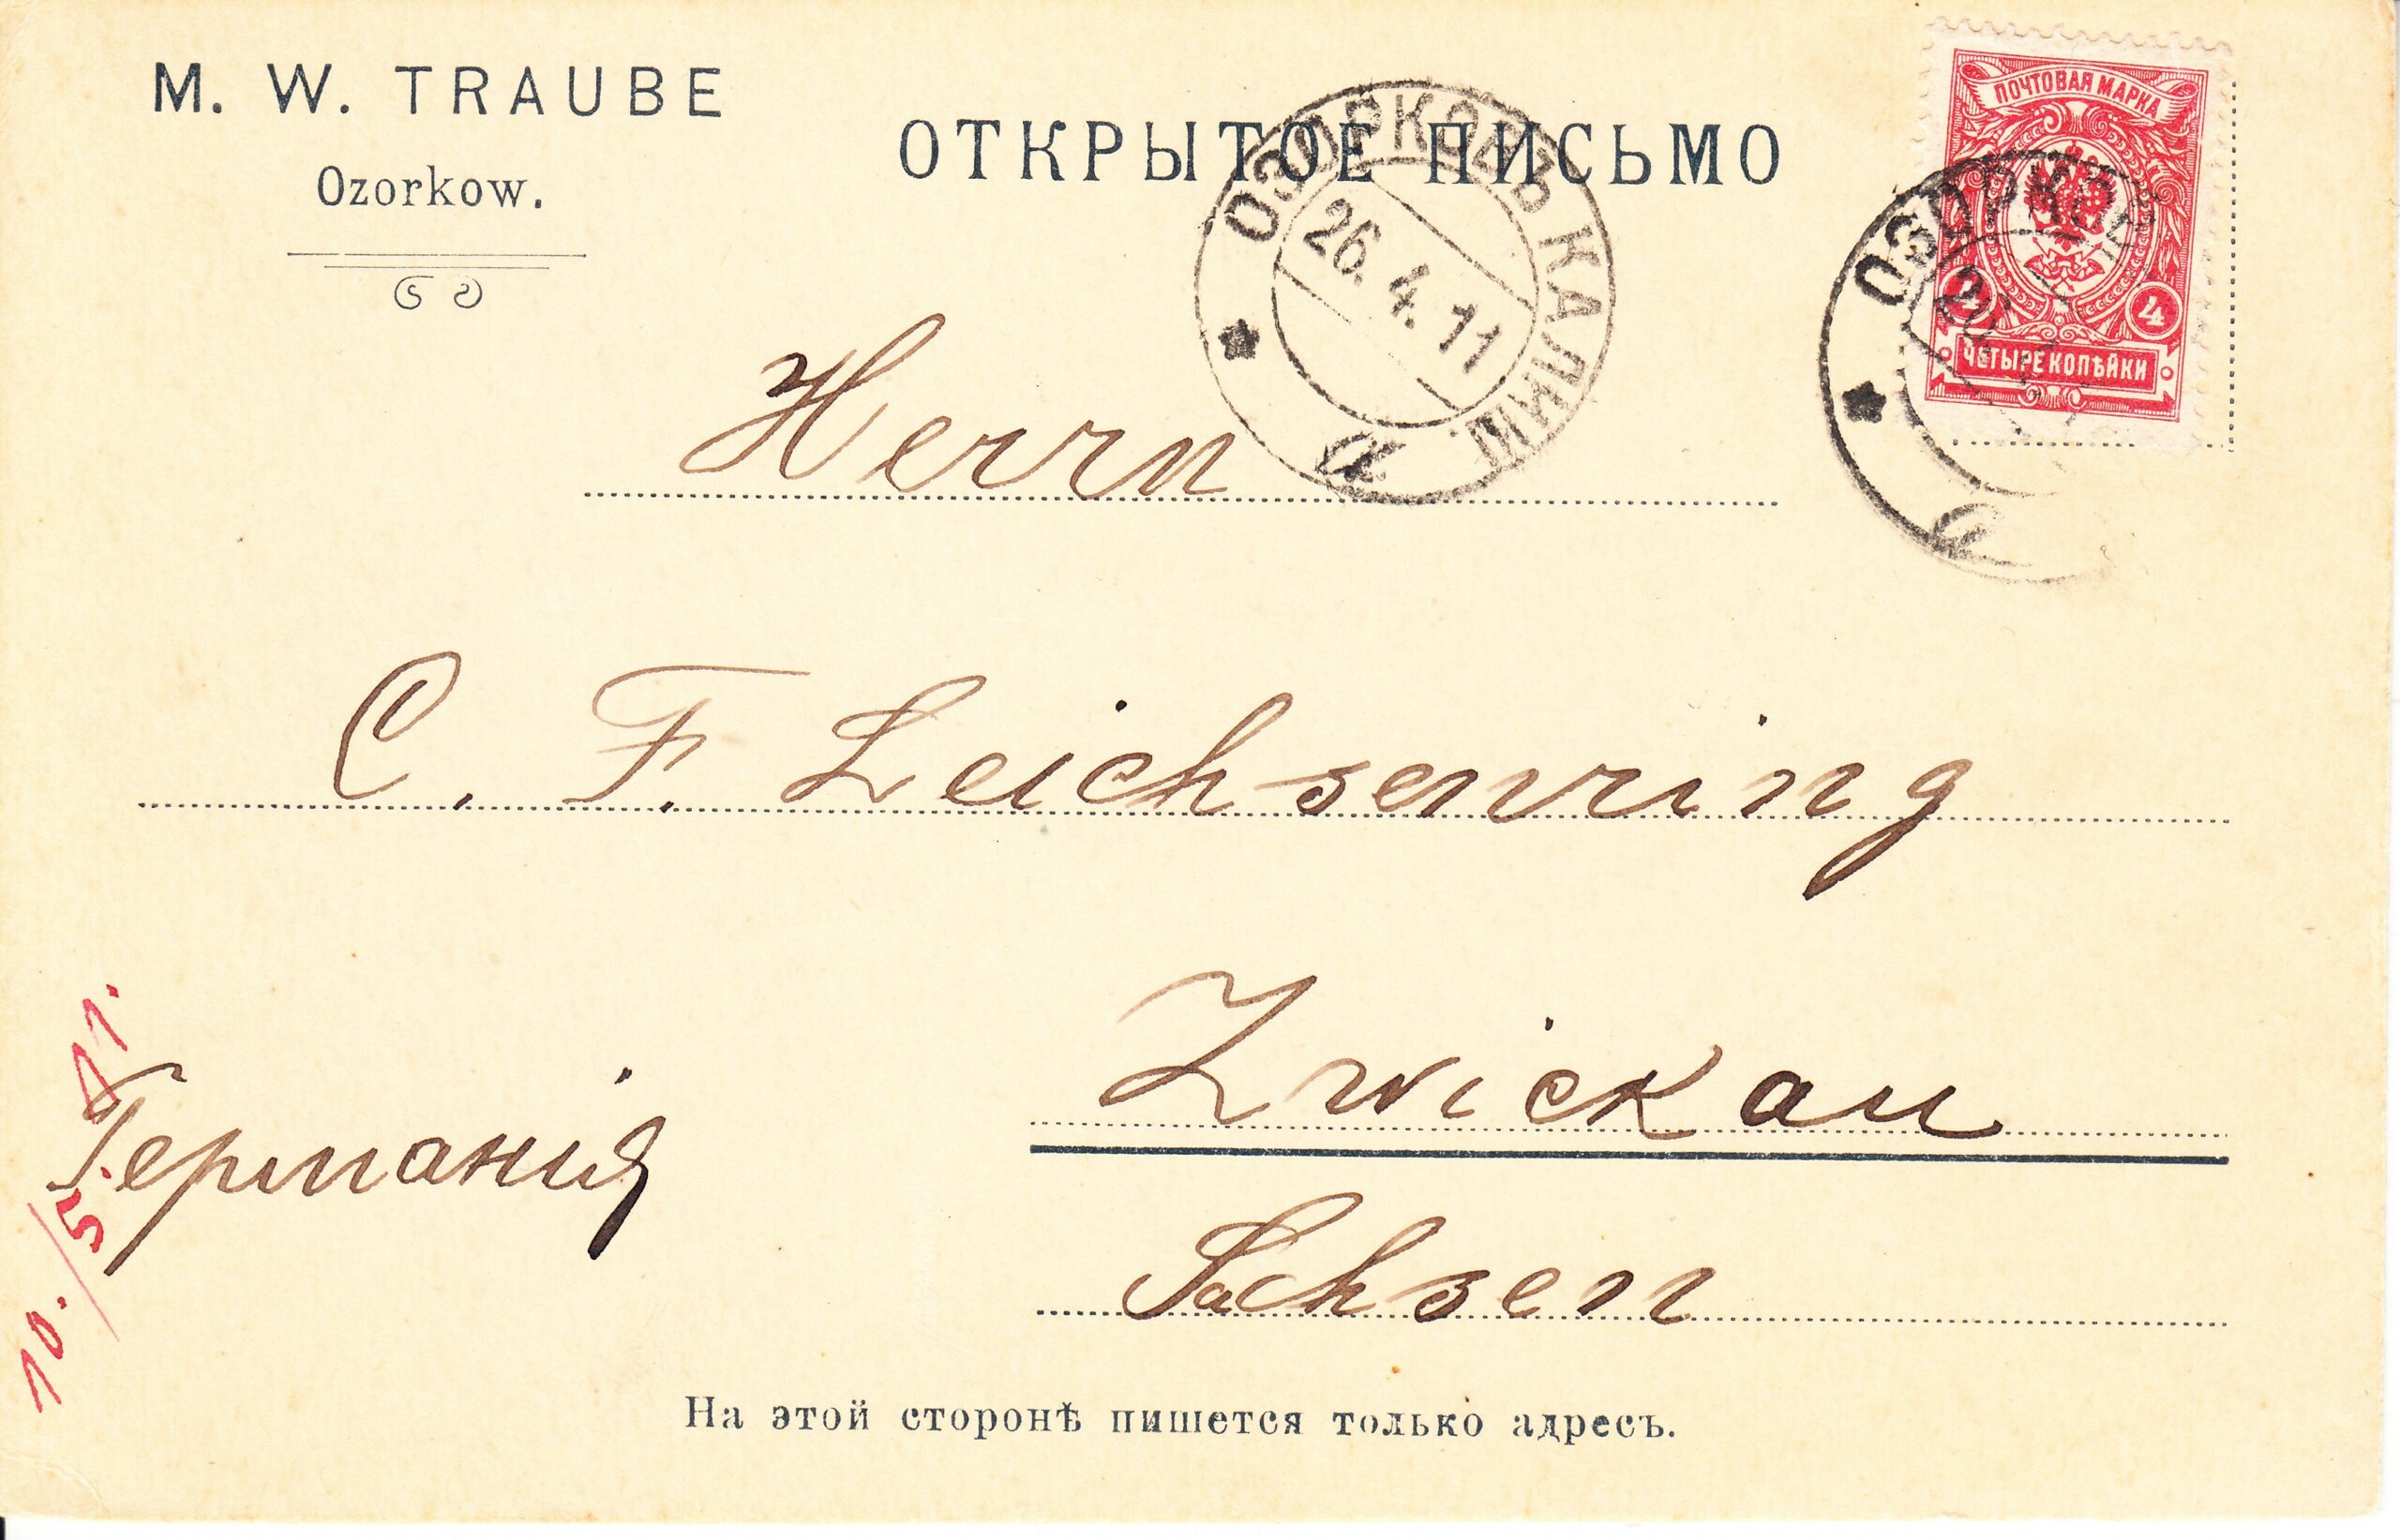 M. W. TRAUBE
Ozorkow.
ОТКРЫТОЕ ПИСЬМО
ОЗОРКОВЪ КАЛИШ.
26.4.11
ПОЧТОВАЯ МАРКА
4 4
ЧЕТЫРЕ КОПѢЙКИ
ОЗОРКОВ
Herrn
C. F. Leichsenring
Zwickau
Германія
Sachsen
10./5. 11.
На этой сторонѣ пишется только адресъ.